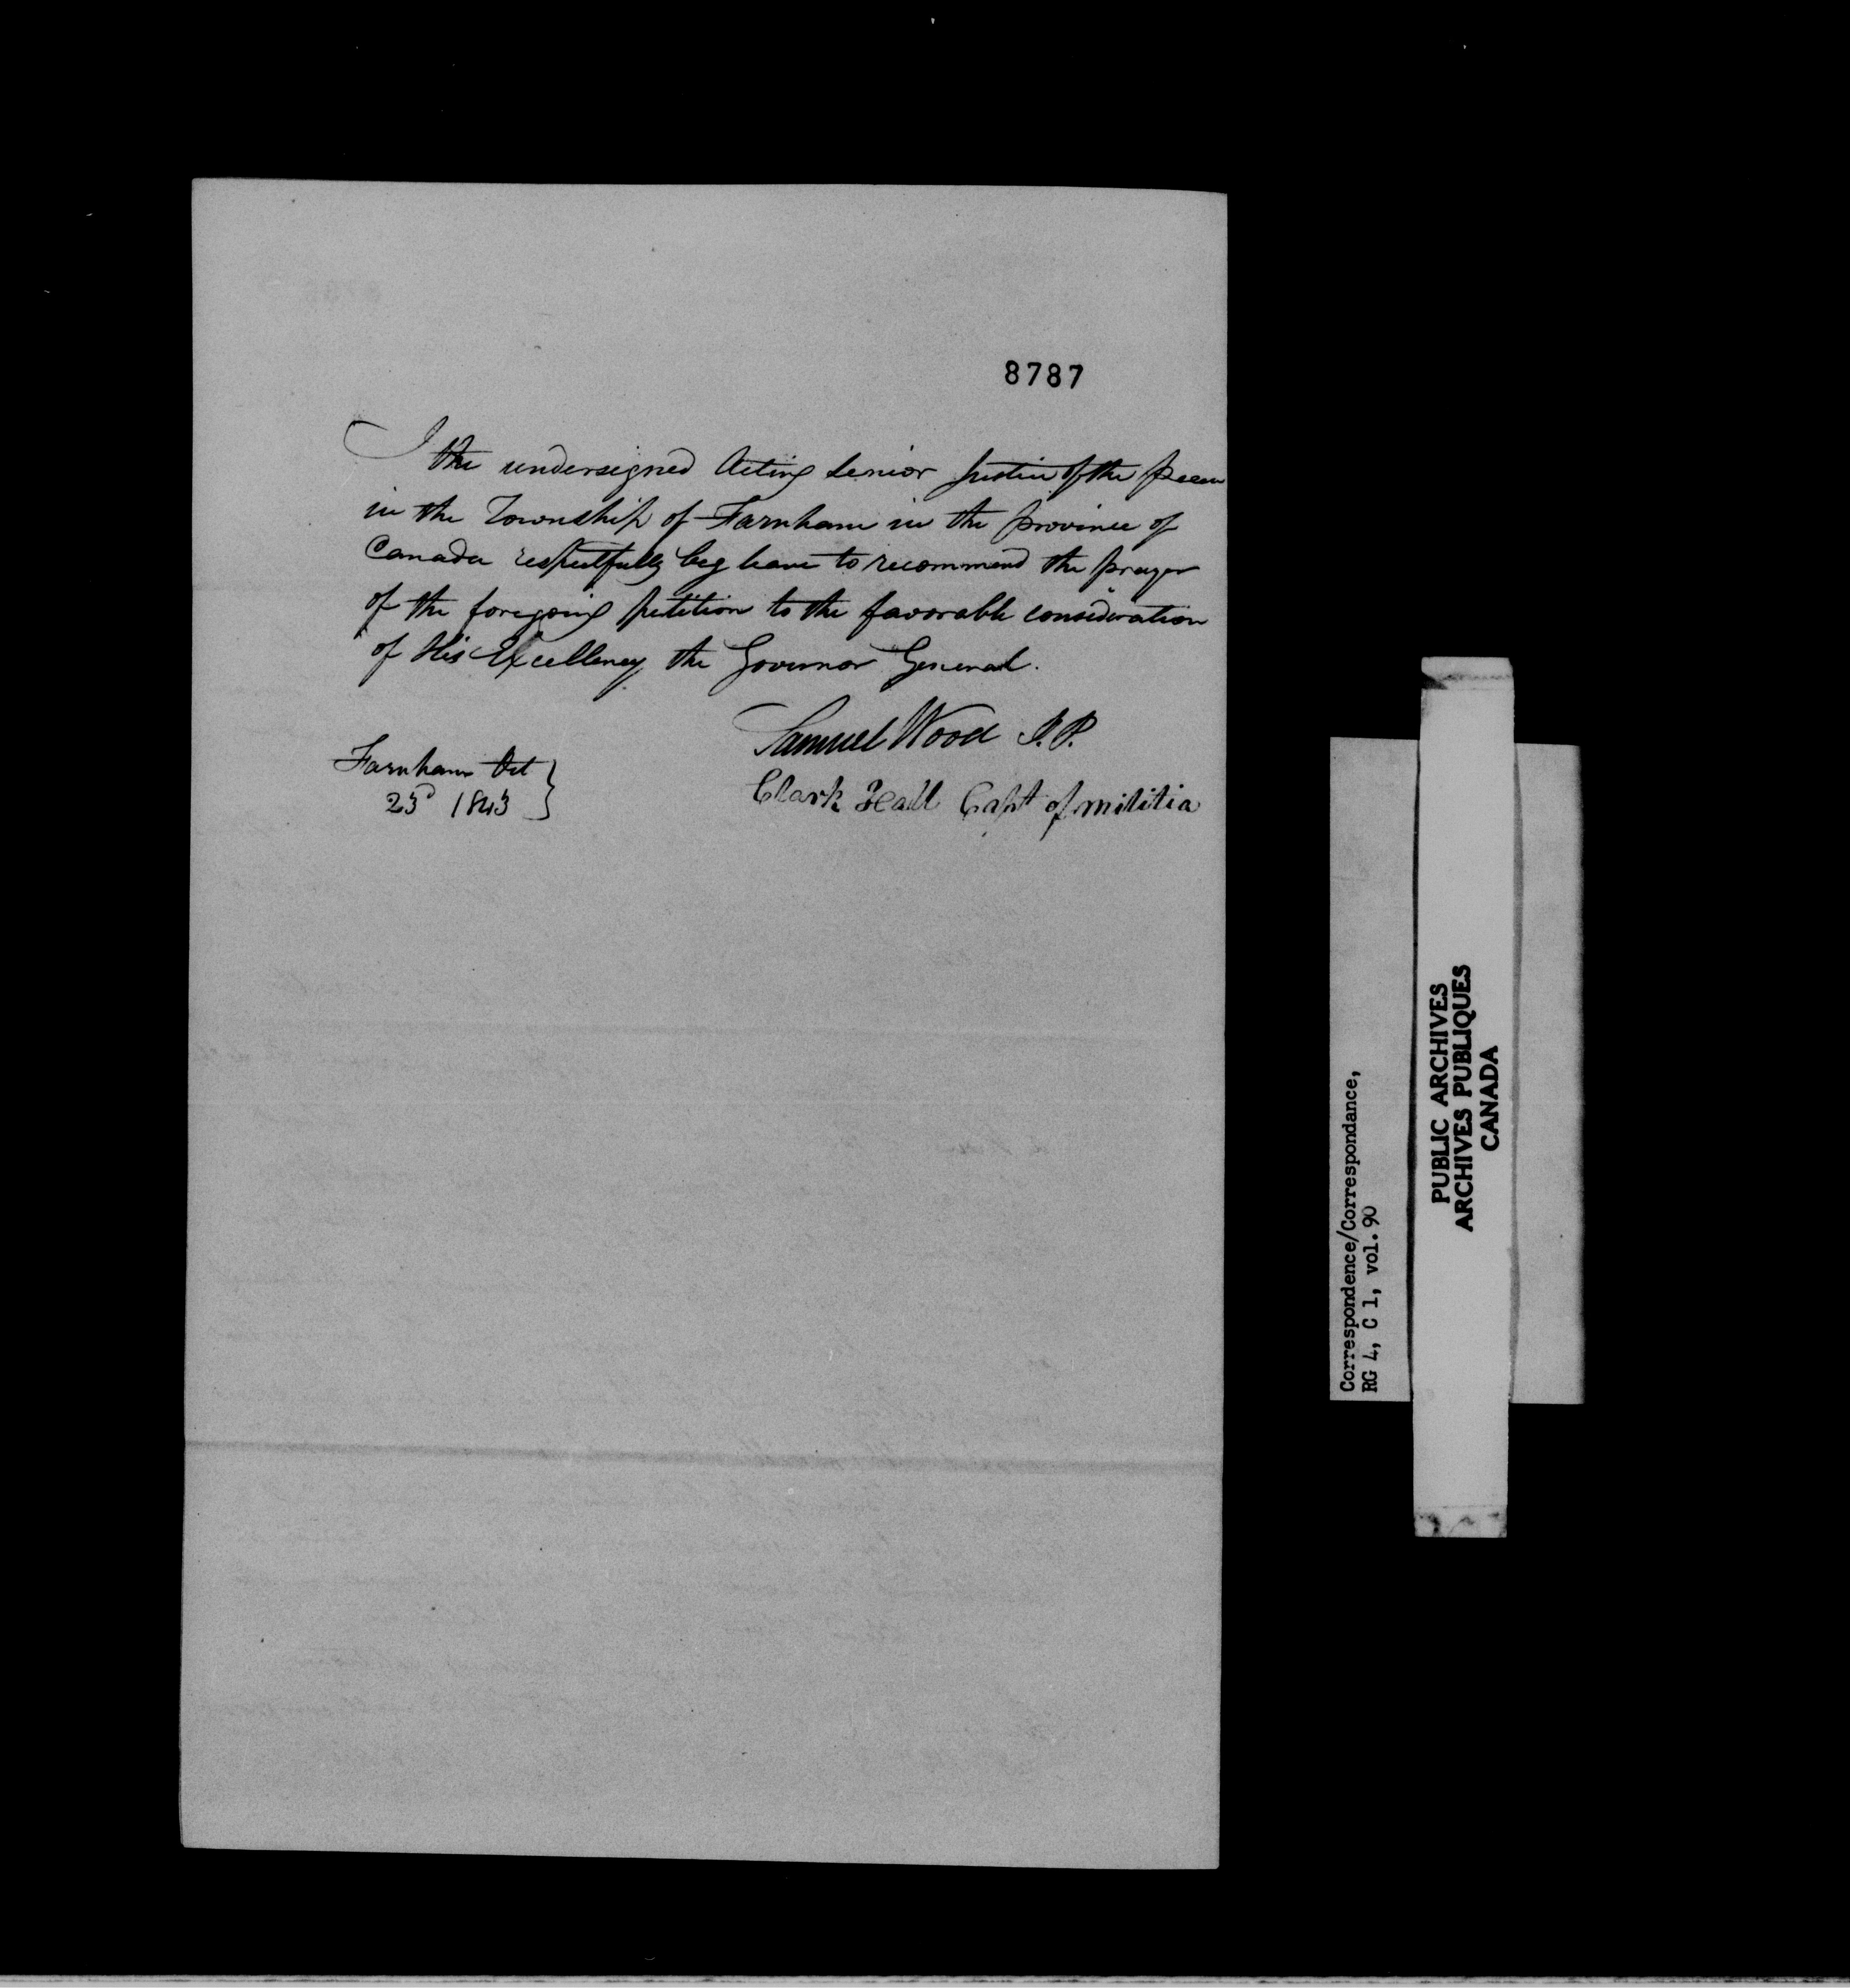 8787
I the undersigned Acting Senior Justice of the Peace
in the Township of Farnham in the province of
Canada respectfully beg leave to recommend the prayer
of the foregoing petition to the favorable consideration
of His Excellency the Governor General.
Samuel Wood J.P.
Clark Hall Capt of militia
Farnham Oct
23d 1843
Correspondence/Correspondance,
RG 4, C 1, vol. 90
PUBLIC ARCHIVES
ARCHIVES PUBLIQUES
CANADA